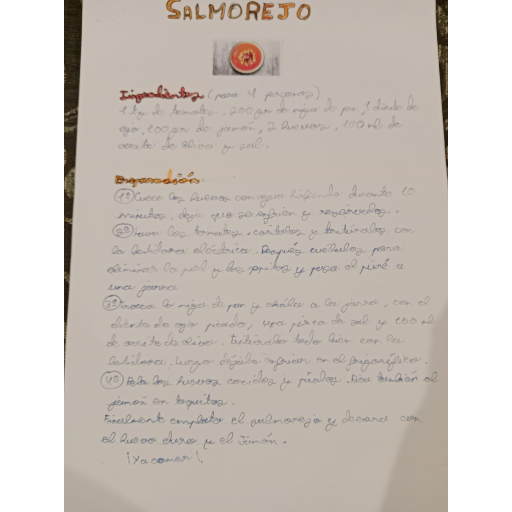 SALMOREJO
Ingredientes (para 4 personas)
1 kg de tomates, 200 gm de miga de pan, 1 diente de
ajo, 100 gm de jamón, 2 huevos, 100 ml de
aceite de oliva y sal.
Preparación
1º Cuece los huevos con agua hirviendo durante 10
minutos, deja que se enfríen y resérvalos.
2º Lava los tomates, córtalos y tritúralos con
la batidora eléctrica. Después cuélalos para
eliminar la piel y las pepitas y pasa el puré a
una jarra
3º Trocea la miga de pan y añádela a la jarra, con el
diente de ajo picado, una pizca de sal y 100 ml
de aceite de oliva. Tritúralo todo bien con la
batidora, luego déjalo enfriar en el frigorífico.
4º Pela los huevos cocidos y pícalos. Pica también el
jamón en taquitos.
Finalmente emplata el salmorejo y decora con
el huevo duro y el jamón.
¡Ya comer!